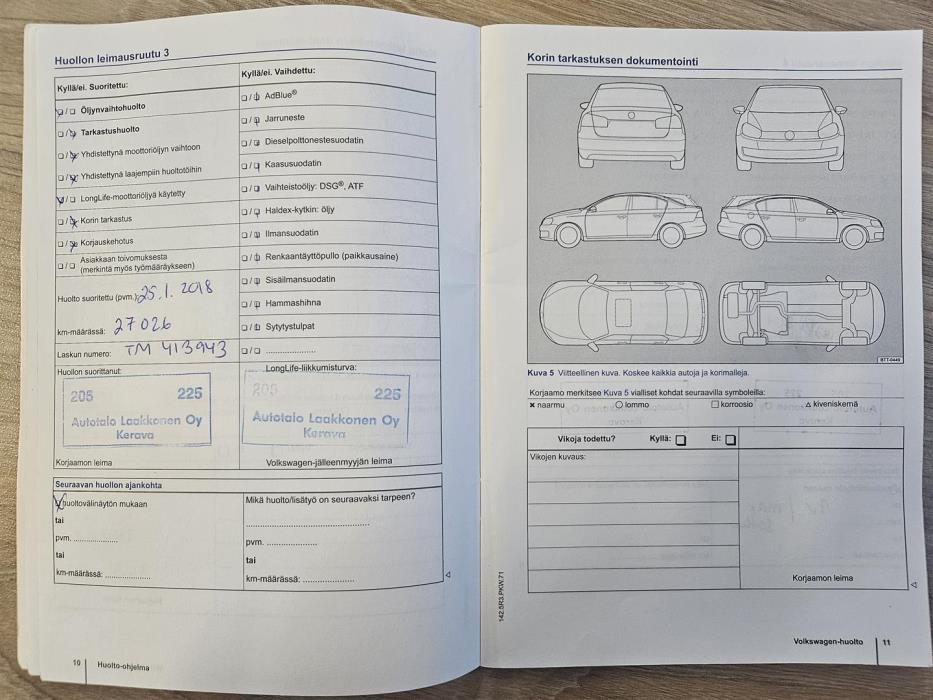 Huollon leimausruutu 3
Kyllä/ei. Suoritettu:
☒ / ☐ Öljynvaihtohuolto
☐ / ☒ Tarkastushuolto
☐ / ☒ Yhdistettynä moottoriöljyn vaihtoon
☐ / ☒ Yhdistettynä laajempiin huoltotöihin
☒ / ☐ LongLife-moottoriöljyä käytetty
☐ / ☒ Korin tarkastus
☐ / ☒ Korjauskehotus
☐ / ☐ Asiakkaan toivomuksesta
(merkintä myös työmääräykseen)
Huolto suoritettu (pvm.): 25.1.2018
km-määrässä: 27026
Laskun numero: TM 413943
Kyllä/ei. Vaihdettu:
☐ / ☒ AdBlue®
☐ / ☒ Jarruneste
☐ / ☒ Dieselpolttonestesuodatin
☐ / ☒ Kaasusuodatin
☐ / ☒ Vaihteistoöljy: DSG®, ATF
☐ / ☒ Haldex-kytkin: öljy
☐ / ☒ Ilmansuodatin
☐ / ☒ Renkaantäyttöpullo (paikkausaine)
☐ / ☒ Sisäilmansuodatin
☐ / ☒ Hammashihna
☐ / ☒ Sytytystulpat
☐ / ☐ ....................
Huollon suorittanut:
205 225
Autotalo Laakkonen Oy
Kerava
Korjaamon leima
LongLife-liikkumisturva:
205 225
Autotalo Laakkonen Oy
Kerava
Volkswagen-jälleenmyyjän leima
Seuraavan huollon ajankohta
☒ huoltovälinäytön mukaan
tai
pvm. ..................
tai
km-määrässä: ..................
Mikä huolto/lisätyö on seuraavaksi tarpeen?
................................................
pvm. ..................
tai
km-määrässä: ....................
10 Huolto-ohjelma
Korin tarkastuksen dokumentointi
BTT-0449
Kuva 5 Viitteellinen kuva. Koskee kaikkia autoja ja korimalleja.
Korjaamo merkitsee Kuva 5 vialliset kohdat seuraavilla symboleilla:
✖ naarmu ○ lommo □ korroosio △ kiveniskemä
Vikoja todettu? Kyllä: ☐ Ei: ☐
Vikojen kuvaus:
Korjaamon leima
142.5R3.PKW.71
Volkswagen-huolto 11